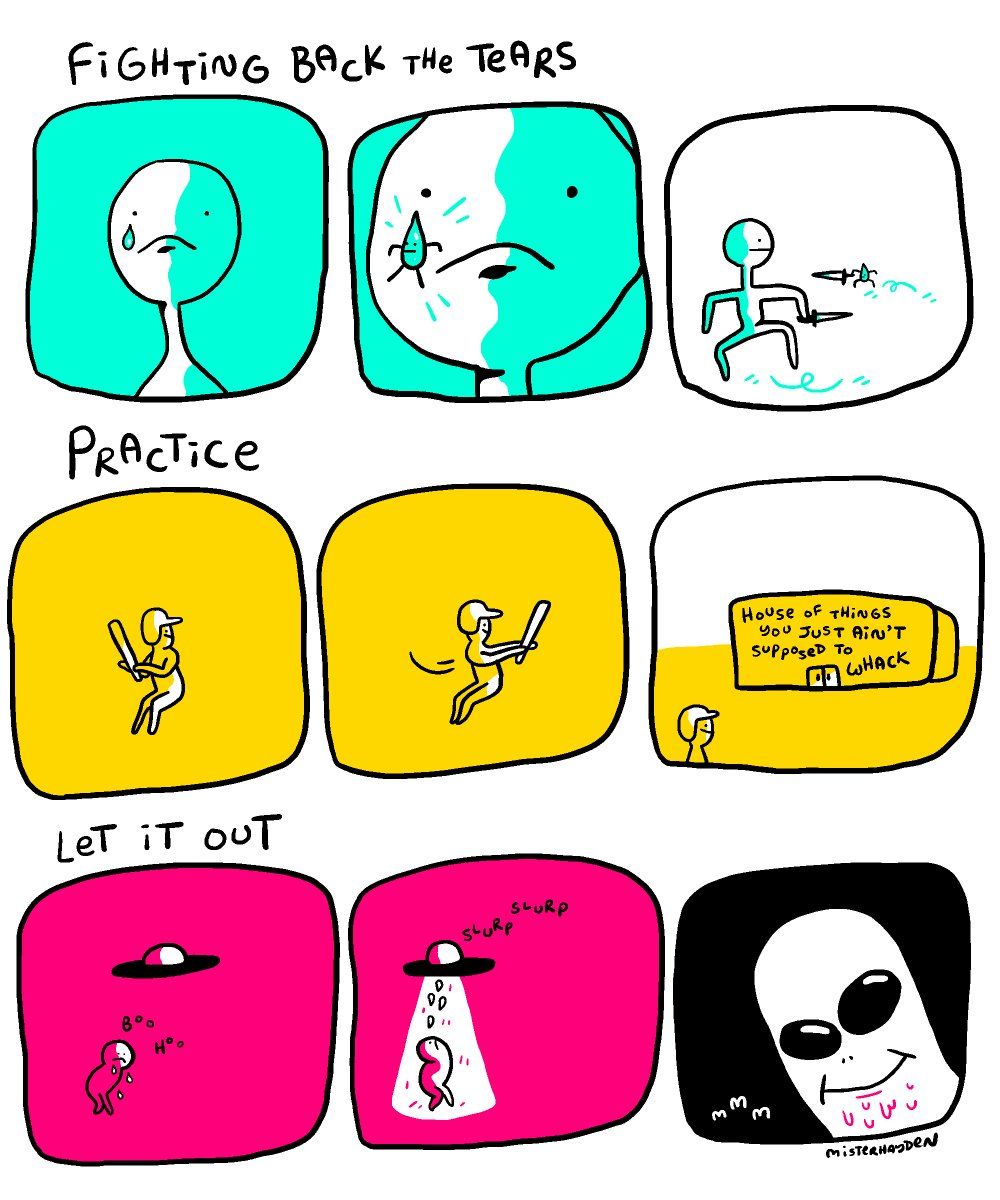 FiGHTiNG BACK THe TeARS
PRACTiCe
HOUSe OF THiNGS
YOU JUST AiN'T
SUPPOSeD TO
WHACK
LeT iT OUT
BOO
HOO
SLURP
SLURP
mmm
MiSTeRHAYDeN